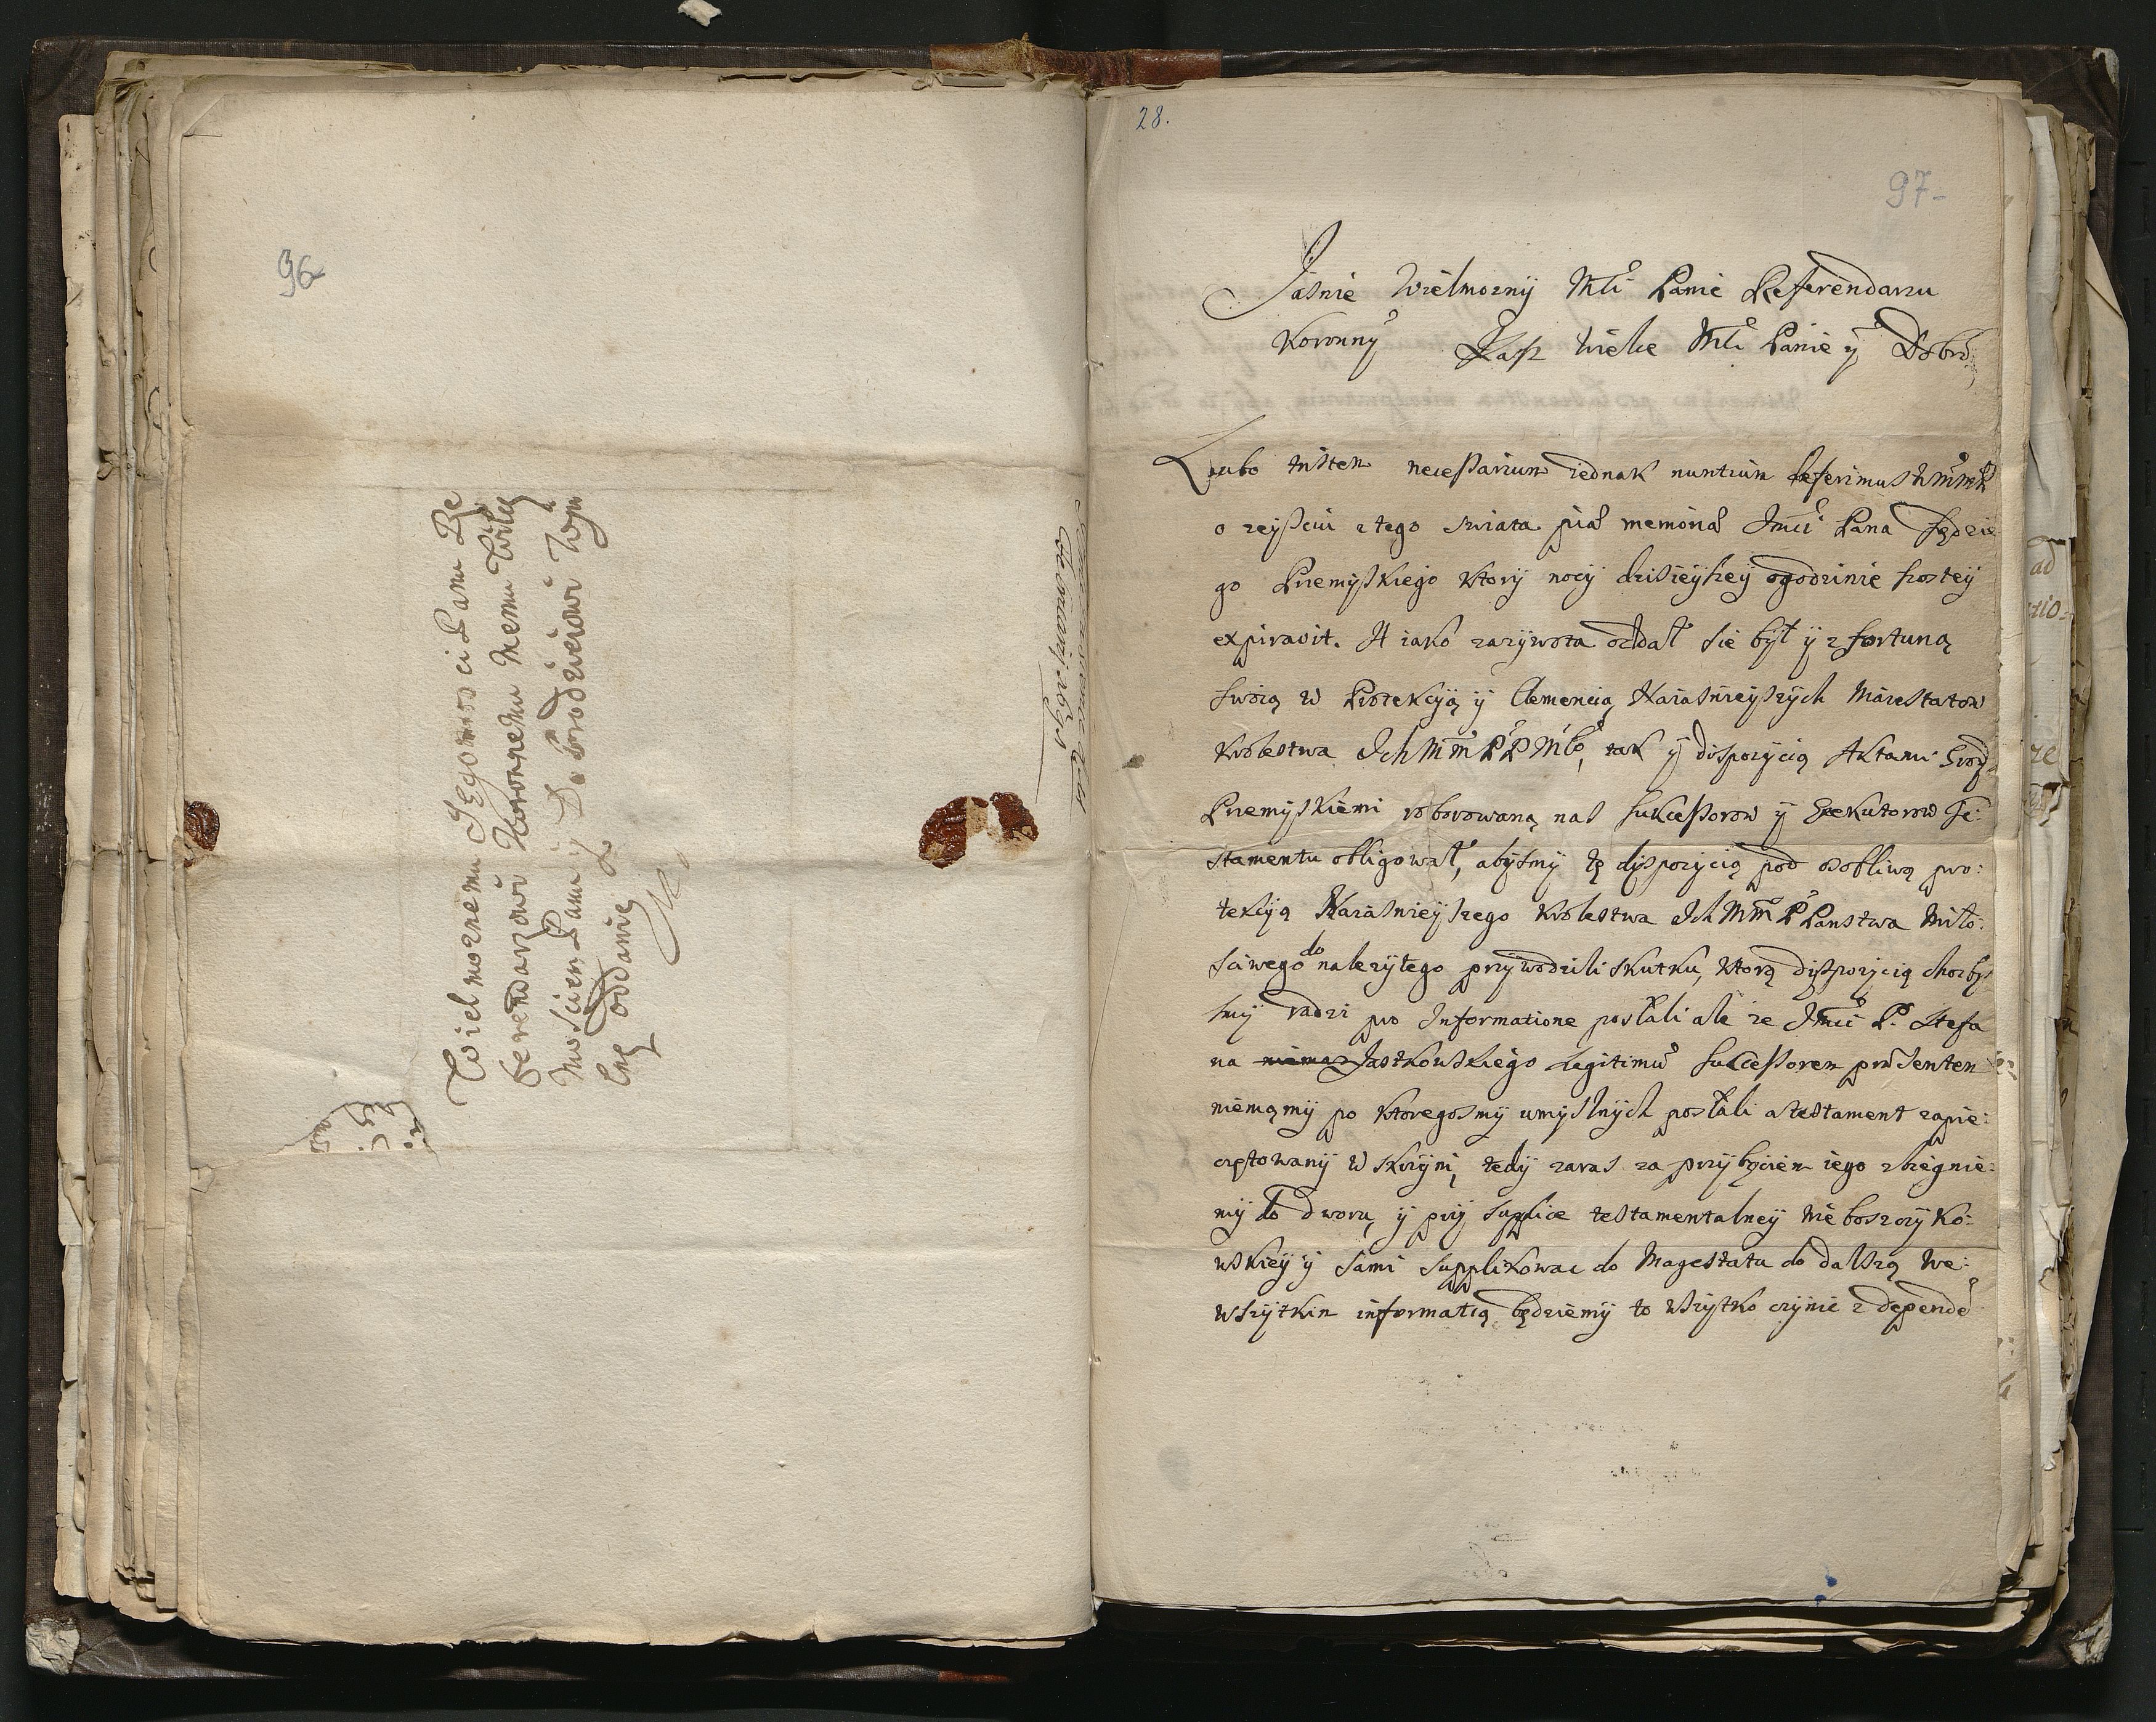 96
Wielmoznemu Jegomosci Panu Re
ferendarzowi Koronnemu Memu Wielce
Mosciem Panu y Dobrodzieiowi
oddanie
28.
97-
Jasnie Wielmozny Mći Panie Referendarzu
Koronny Nasz Wielce Mći Panie y Dobro
Lubo tristem necessarium iednak nuntium deferimus
o zeysciu z tego swiata piae memoriae Jmci Pana Sędzie
go Przemyskiego ktory nocy dzisieyszey o godzinie szostey
expiravit. A iako za zywota oddał sie był y z fortuną
swoią w Protekcyą y Clemencią Naiasnieyszych Maiestatow
Krolestwa Ich Mm PP Mło, tak y dispozycią Aktami Grodz
Przemyskiemi roborowaną nas sukcessorow y Exekutorow Te:
stamentu obligował, abysmy tę dyspozycią pod osobliwą pro:
tekcyą Naiasnieyszego Krolestwa Ich Mm P Panstwa Miło:
sciwego do nalezytego przywodzili skutku, ktorą dispozycią chocbys
my radzi pro Informatione posłali ale ze Jmci P. Stefa
na niemasz Jastkowskiego legitimum sukcessorem praesentem
niemamy po ktoregosmy umyslnych posłali a testament zapie:
czętowany w skrzyni, tedy zaras za przybyciem iego zbiegnie:
my do dworu y przy suplice testamentalney Nieboszczyko:
wskiey y sami supplikowac do Magestatu do dalszą we:
wszytkim informatią będziemy to wszytko czynic z depende